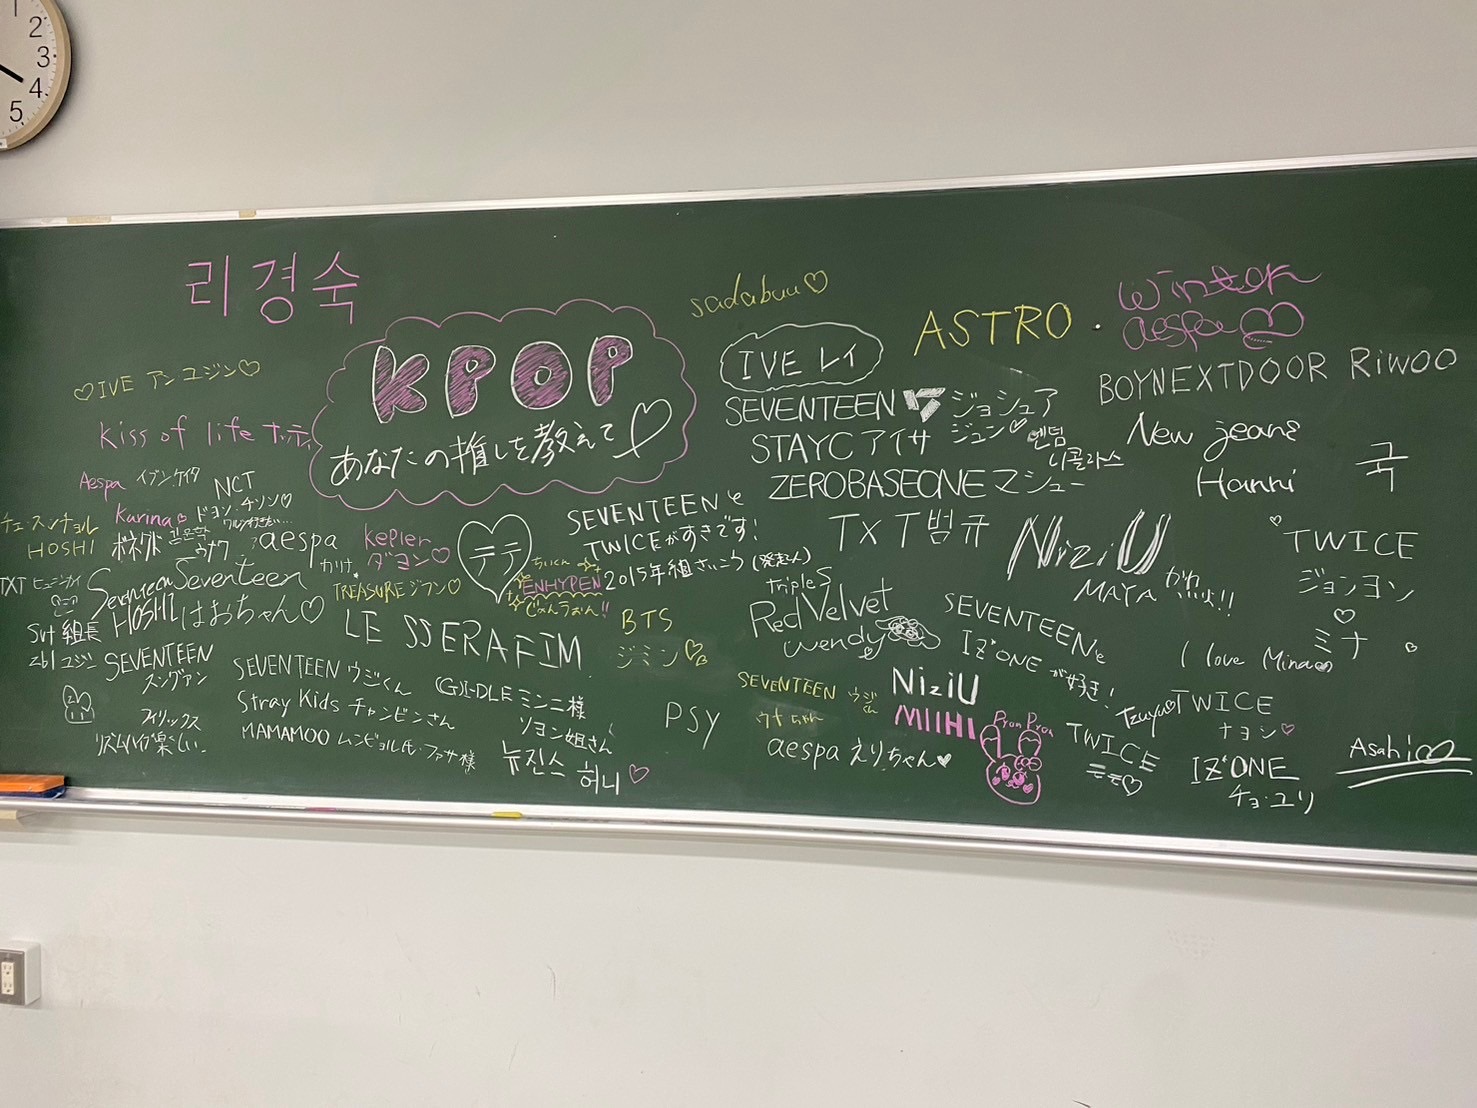 1
2
3
4
5
리경숙
KPOP
あなたの推しを教えて♡
♡IVE アン ユジン♡
Kiss of life ナッティ
Aespa イブンケイタ
NCT
Karina
ドヨン・チソン♡
チェ スンチョル
HOSHI
aespa
カリナ
kepler
ダヨン♡
テテ
TXT ヒュニンカイ
Seventeen Seventeen
HOSHI はおちゃん♡
TREASURE ジフン♡
ちぇいん
ENHYPEN
じょんうぉん!!
SEVENTEENと
TWICEがすきです!
2015年組さいこう(発言人)
LE SSERAFIM
BTS
ジミン♡
Svt 組長
zb1 ユジン
SEVENTEEN
スングァン
SEVENTEEN ウジくん
Stray Kids チャンビンさん
MAMAMOO ムンビョル氏・ファサ様
(G)I-DLE ミンニ様
ソヨン姐さん
뉴진스 허니♡
フィリックス
楽しい
PSY
sadabuu♡
IVE レイ
ASTRO
Winter
aespa
SEVENTEEN ジョシュア
ジュン♡
STAYC アイサ
엔텀
니콜라스
ZEROBASEONE マシュー
BOYNEXTDOOR RIWOO
New jeans
Hanni
국
TXT 범규
NiziU
MAYA かわいいよ!!
TWICE
ジョンヨン
♡
ミナ
I love Mina
tripleS
Red Velvet
wendy
SEVENTEENと
IZ*ONE が好き!
SEVENTEEN ウジくん
ウナちゃん
aespa えりちゃん♥
NiziU
MIIHI
Pyon Pyon
Tzuyu♡
TWICE
ナヨン♡
TWICE
モモ♡
IZ*ONE
チョ・ユリ
Asahi